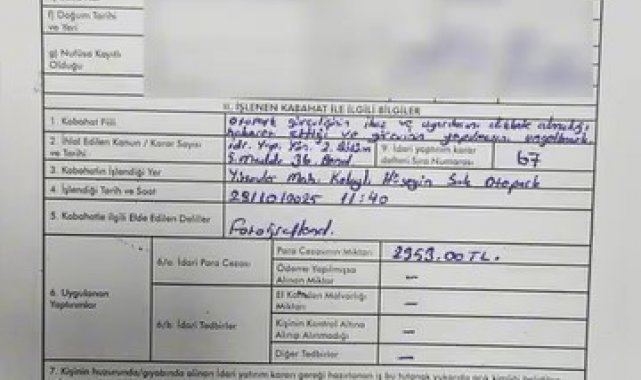 f) Doğum Tarihi
ve Yeri
g) Nüfusa Kayıtlı
Olduğu
II. İŞLENEN KABAHAT İLE İLGİLİ BİLGİLER
1. Kabahat Fiili
Otopark ikaz ve uyarıları dikkate almadığı
hakaret ettiği ve görevini yapmasını engellemek
2. İhlal Edilen Kanun / Karar Sayısı
ve Tarihi
5. Madde 36. Bend
9. İdari yaptırım karar
defteri Sıra Numarası
67
3. Kabahatin İşlendiği Yer
Mah. Hüseyin Sok Otopark
4. İşlendiği Tarih ve Saat
28/10/2025 11:40
5. Kabahatle ilgili Elde Edilen Deliller
Fotoğrafland.
6. Uygulanan
Yaptırımlar
6/a. İdari Para Cezası
Para Cezasının Miktarı
2953.00 TL.
Ödeme Yapılmışsa
Alınan Miktar
–
6/b. İdari Tedbirler
El Konulan Malvarlığı
Miktarı
–
Kişinin Kontrol Altına
Alınıp Alınmadığı
–
Diğer Tedbirler
–
7. Kişinin huzurunda/gıyabında alınan İdari yatırım kararı gereği hazırlanan iş bu tutanak yukarıda açık kimliği